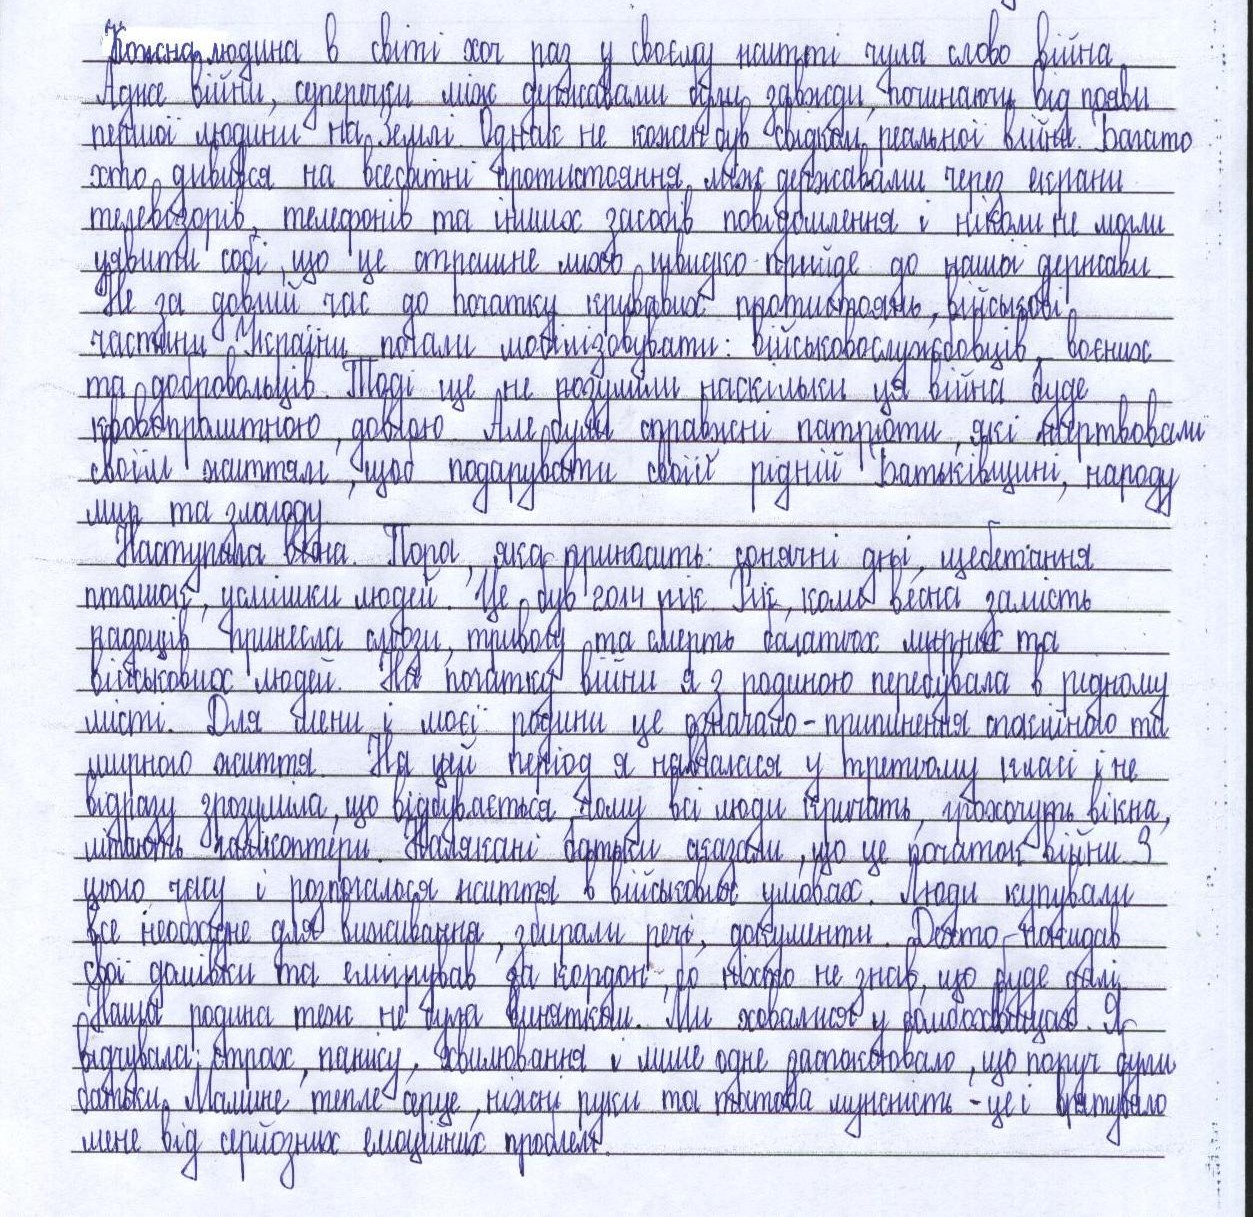 Кожна людина в світі хоч раз у своєму житті чула слово війна.
Адже війни, суперечки між державами були завжди, починаючи від появи
першої людини на Землі. Однак не кожен був свідком реальної війни. Багато
хто дивився на всесвітні протистояння між державами через екрани
телевізорів, телефонів та інших засобів повідомлення і ніколи не могли
уявити собі, що це страшне лихо швидко прийде до нашої держави.
Не за довгий час до початку кривавих протистоянь, військові
частини України почали мобілізовувати: військовослужбовців, воєнних
та добровольців. Тоді ще не розуміли наскільки ця війна буде
кровопролитною, довгою. Але були справжні патріоти, які жертвовали
своїм життям, щоб подарувати своїй рідній Батьківщині, народу
мир та злагоду.
Наступала весна. Пора, яка приносить: сонячні дні, щебетання
пташок, усмішки людей. Це був 2014 рік. Рік, коли весна замість
радощів принесла сльози, тривогу та смерть багатьох мирних та
військових людей. На початку війни я з родиною перебувала в рідному
місті. Для мене і моєї родини це означало - припинення спокійного та
мирного життя. На цей період я навчалася у третьому класі і не
відразу зрозуміла, що відбувається, чому всі люди кричать, грохочуть вікна,
літають гелікоптери. Налякані батьки сказали, що це початок війни. З
цього часу і розпочалося життя в військових умовах. Люди купували
все необхідне для виживання, збирали речі, документи. Дехто покидав
свої домівки та емігрував за кордон, бо ніхто не знав, що буде далі.
Наша родина теж не була винятком. Ми ховалися у бомбосховищах. Я
відчувала: страх, паніку, хвилювання і лише одне заспокоювало, що поруч були
батьки. Мамине тепле серце, ніжні руки та татова мужність - це і врятувало
мене від серйозних емоційних проблем.